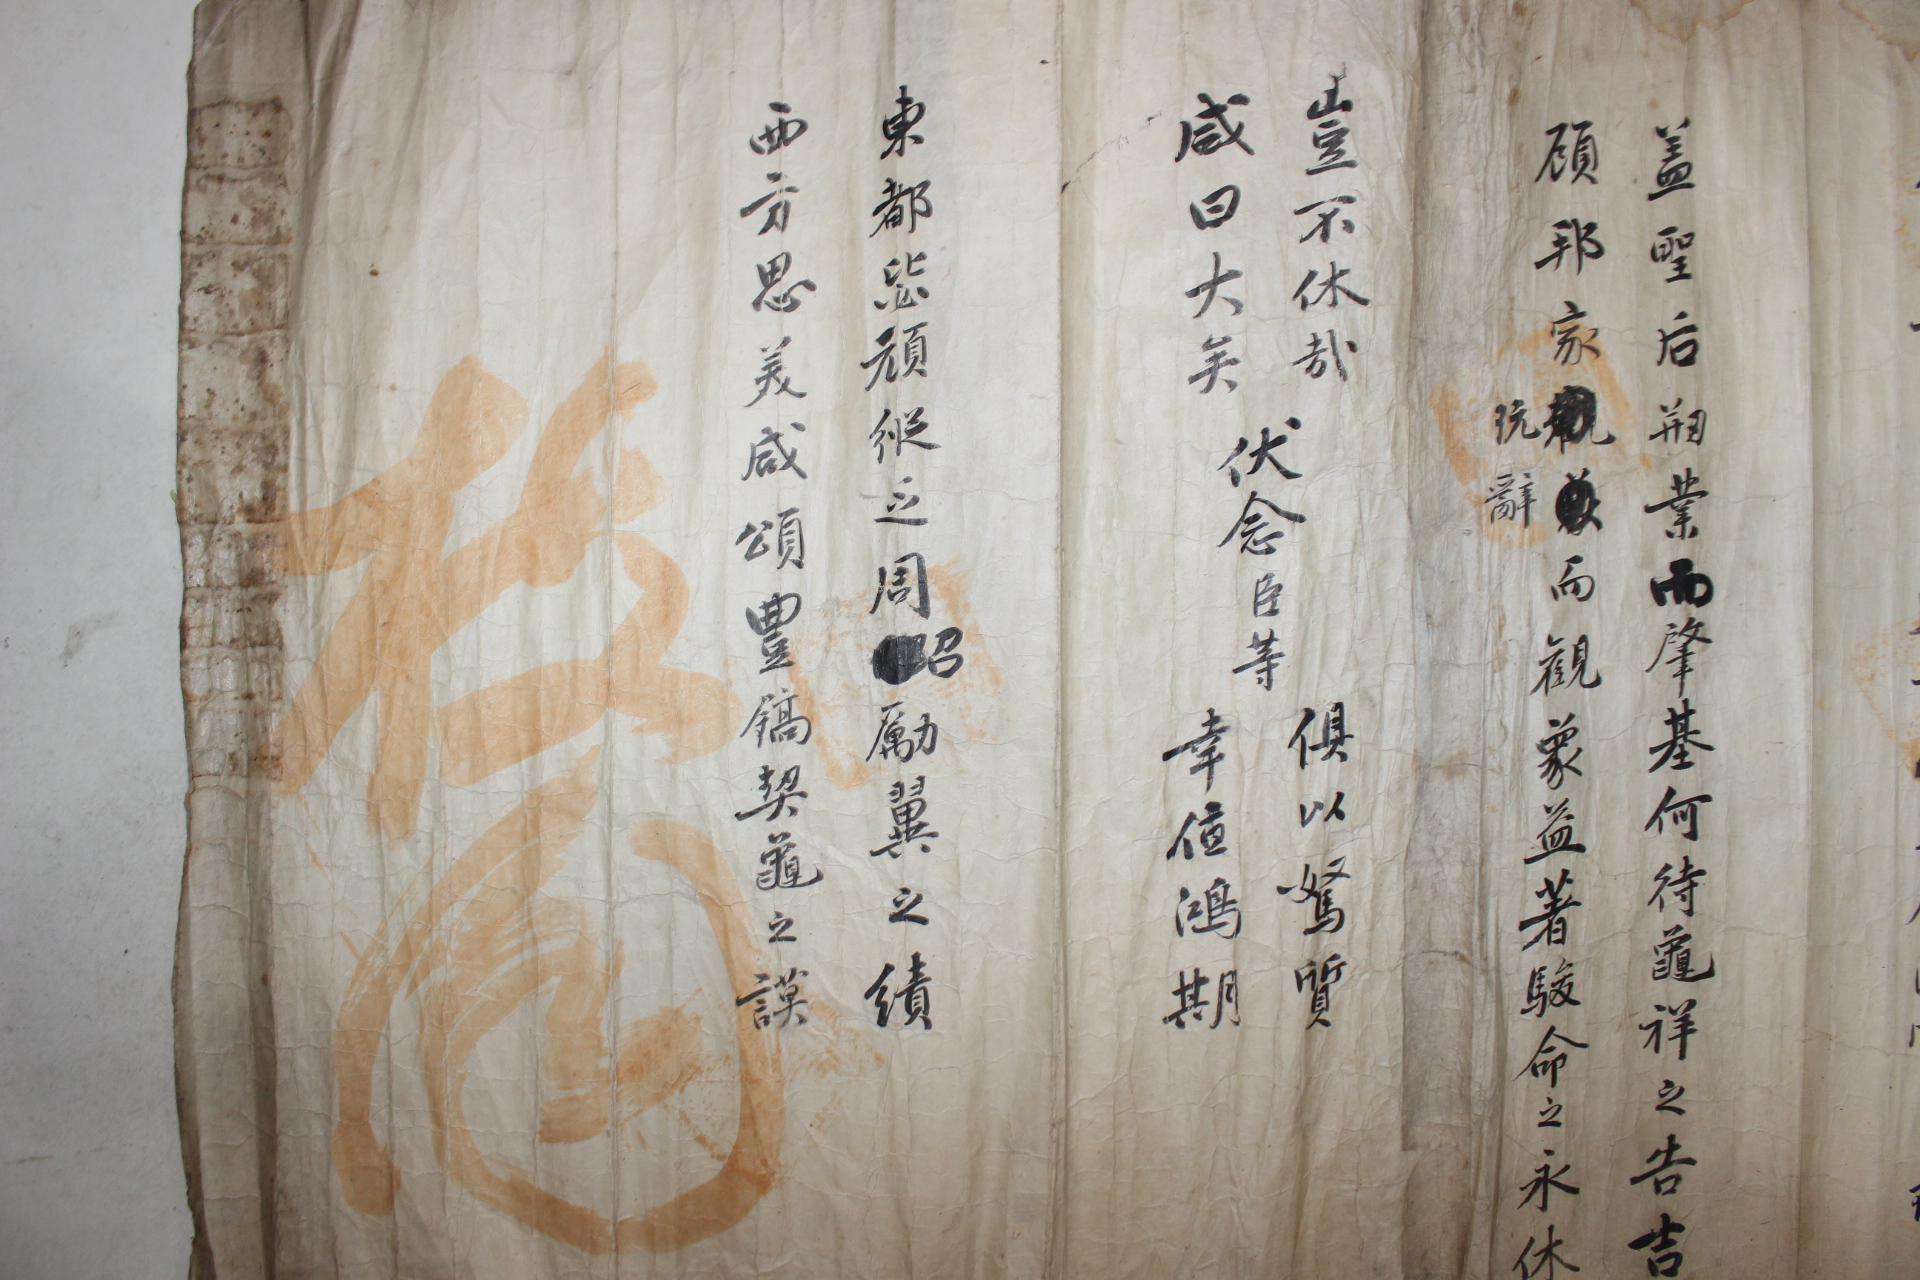 蓋聖后刱業而肇基何待龜祥之告吉
顧邦家玩辭而觀象益著駿命之永休
豈不休哉
咸曰大矣
伏念臣等
俱以駑質
幸値鴻期
東都毖頑縱乏周昭勵翼之績
西方思美咸頌豊鎬契龜之謨